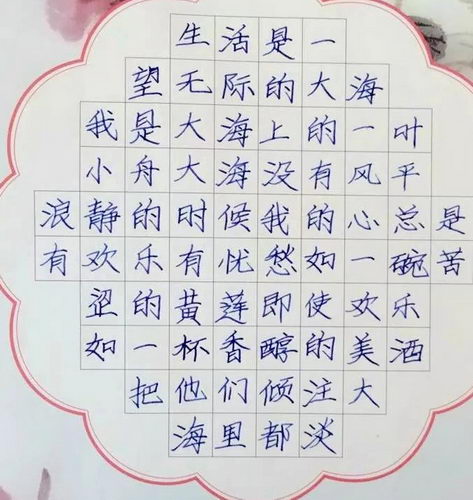 生活是一
望无际的大海
我是大海上的一叶
小舟大海没有风平
浪静的时候我的心总是
有欢乐有忧愁如一碗苦
涩的黄莲即使欢乐
如一杯香醇的美酒
把他们倾注大
海里都淡